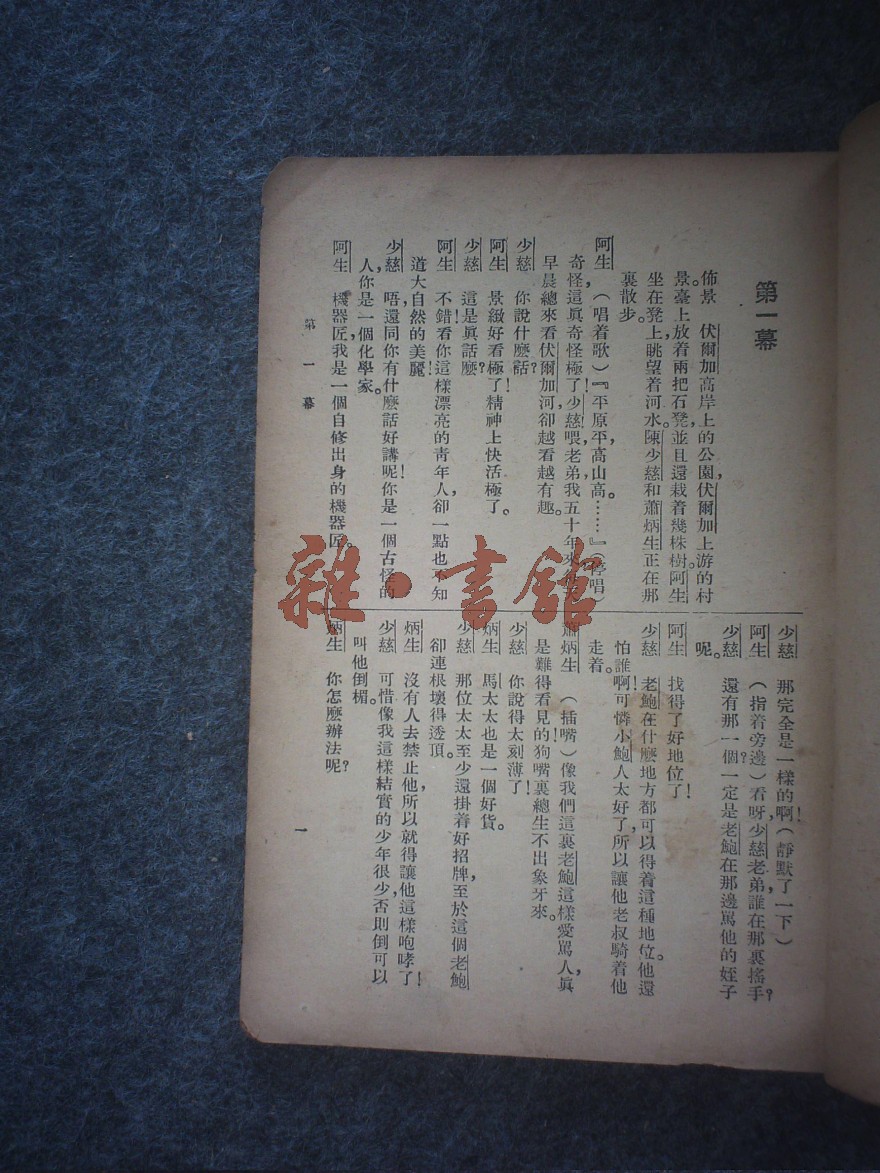 第一幕
佈景　伏爾加高岸上的公園，伏爾加上游的村
景。臺上放着兩把石凳，並且還栽着幾株樹。阿生
坐在凳上，眺望着河水。陳少慈和蕭炳生正在那
裏散步。
阿生　（唱着歌）『平原平，高山高。……』（停唱）
奇怪，這眞奇怪極了！少慈，喂，老弟，我五十年來
早晨總來看伏爾加河，卻越看越有趣。
少慈　你說什麽話？
阿生　景緻好看極了！精神上快活極了。
少慈　這是眞話麽？
阿生　不錯！看你這樣漂亮的靑年人，卻一點也不知
道大自然的美麗！
少慈　唔，還同你有什麽話好講呢！你是一個古怪的
人，你是一個化學家。
阿生　機器匠，我是一個自修出身的機器匠。
少慈　那完全是一樣的啊！（靜默了一下）
阿生　（指着旁邊）看呀，少慈老弟，誰在那裏搖手？
少慈　還有那一個？一定是老鮑在那邊罵他的姪子
呢。
阿生　找得了好地位了！
少慈　老鮑在什麽地方都可以得着這種地位。他還
怕誰啊！可憐小鮑人太好了，所以讓他老叔騎着他
走着。
蕭炳生　（插嘴）像我們這裏老鮑這樣愛罵人，眞
是難得看見的！狗嘴裏總生不出象牙來。
少慈　你說得太刻薄了！
炳生　馬太太也是一個好貨。
少慈　那位太太至少還掛着好招牌，至於這個老鮑
卻連根壞得透頂。
炳生　沒有人去禁止他，所以就得讓他這樣咆哮了！
少慈　可惜像我這樣結實的少年很少，否則倒可以
叫他倒楣。
炳生　你怎麽辦法呢？
第一幕
一
雜·書館